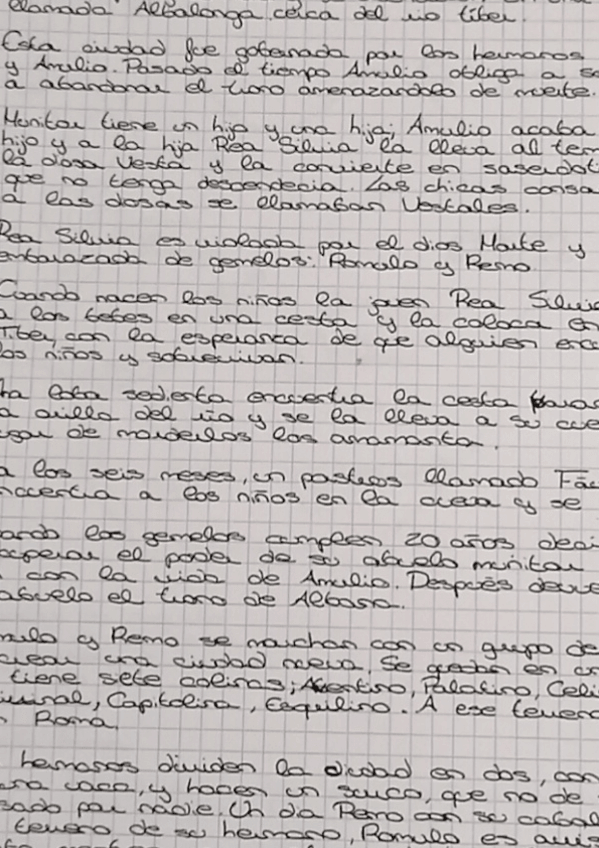 llamada Albalonga, cerca del rio tiber.
Esta ciudad fue gobernada por los hermanos
y Amulio. Pasado el tiempo Amulio obliga a
a abandonar el trono amenazandolo de muerte.
Munitor tiene un hijo y una hija; Amulio acaba
hijo y a la hija Rea Silvia la lleva al tem
la diosa Vesta y la convierte en saserdot
que no tenga descendecia. Las chicas consa
a las diosas se llamaban Vestales.
Rea Silvia es violada por el dios Marte y
embarazada de gemelos: Romulo y Remo.
Cuando nacen los niños la joven Rea Silvi
a los bebes en una cesta y la coloca en
Tiber, con la esperanza de que alguien
los niños y sobrevivan.
loba sedienta encuentra la cesta
a orilla del rio y se la lleva a su cue
gar de morderlos los amamanta.
a los seis meses, un pastores llamado Fac
ncuentra a los niños en la cueva y se
ando los gemelos cumplen 20 años deci
cuperar el poder de su abuelo munitor
con la vida de Amulio. Después devue
abuelo el trono de
mulo y Remo se marchan con un grupo de
crear una ciudad nueva. Se quedan en un
tiene siete colinas; Aventino, Palatino, Celi
uirinal, Capitolina, Esquilino. A ese terreno
Roma.
hermanos dividen la ciudad en dos, con
una vaca, y hacen un surco, que no de
sado por nadie. Un dia Remo con su cabal
terreno de su hermano, Romulo es